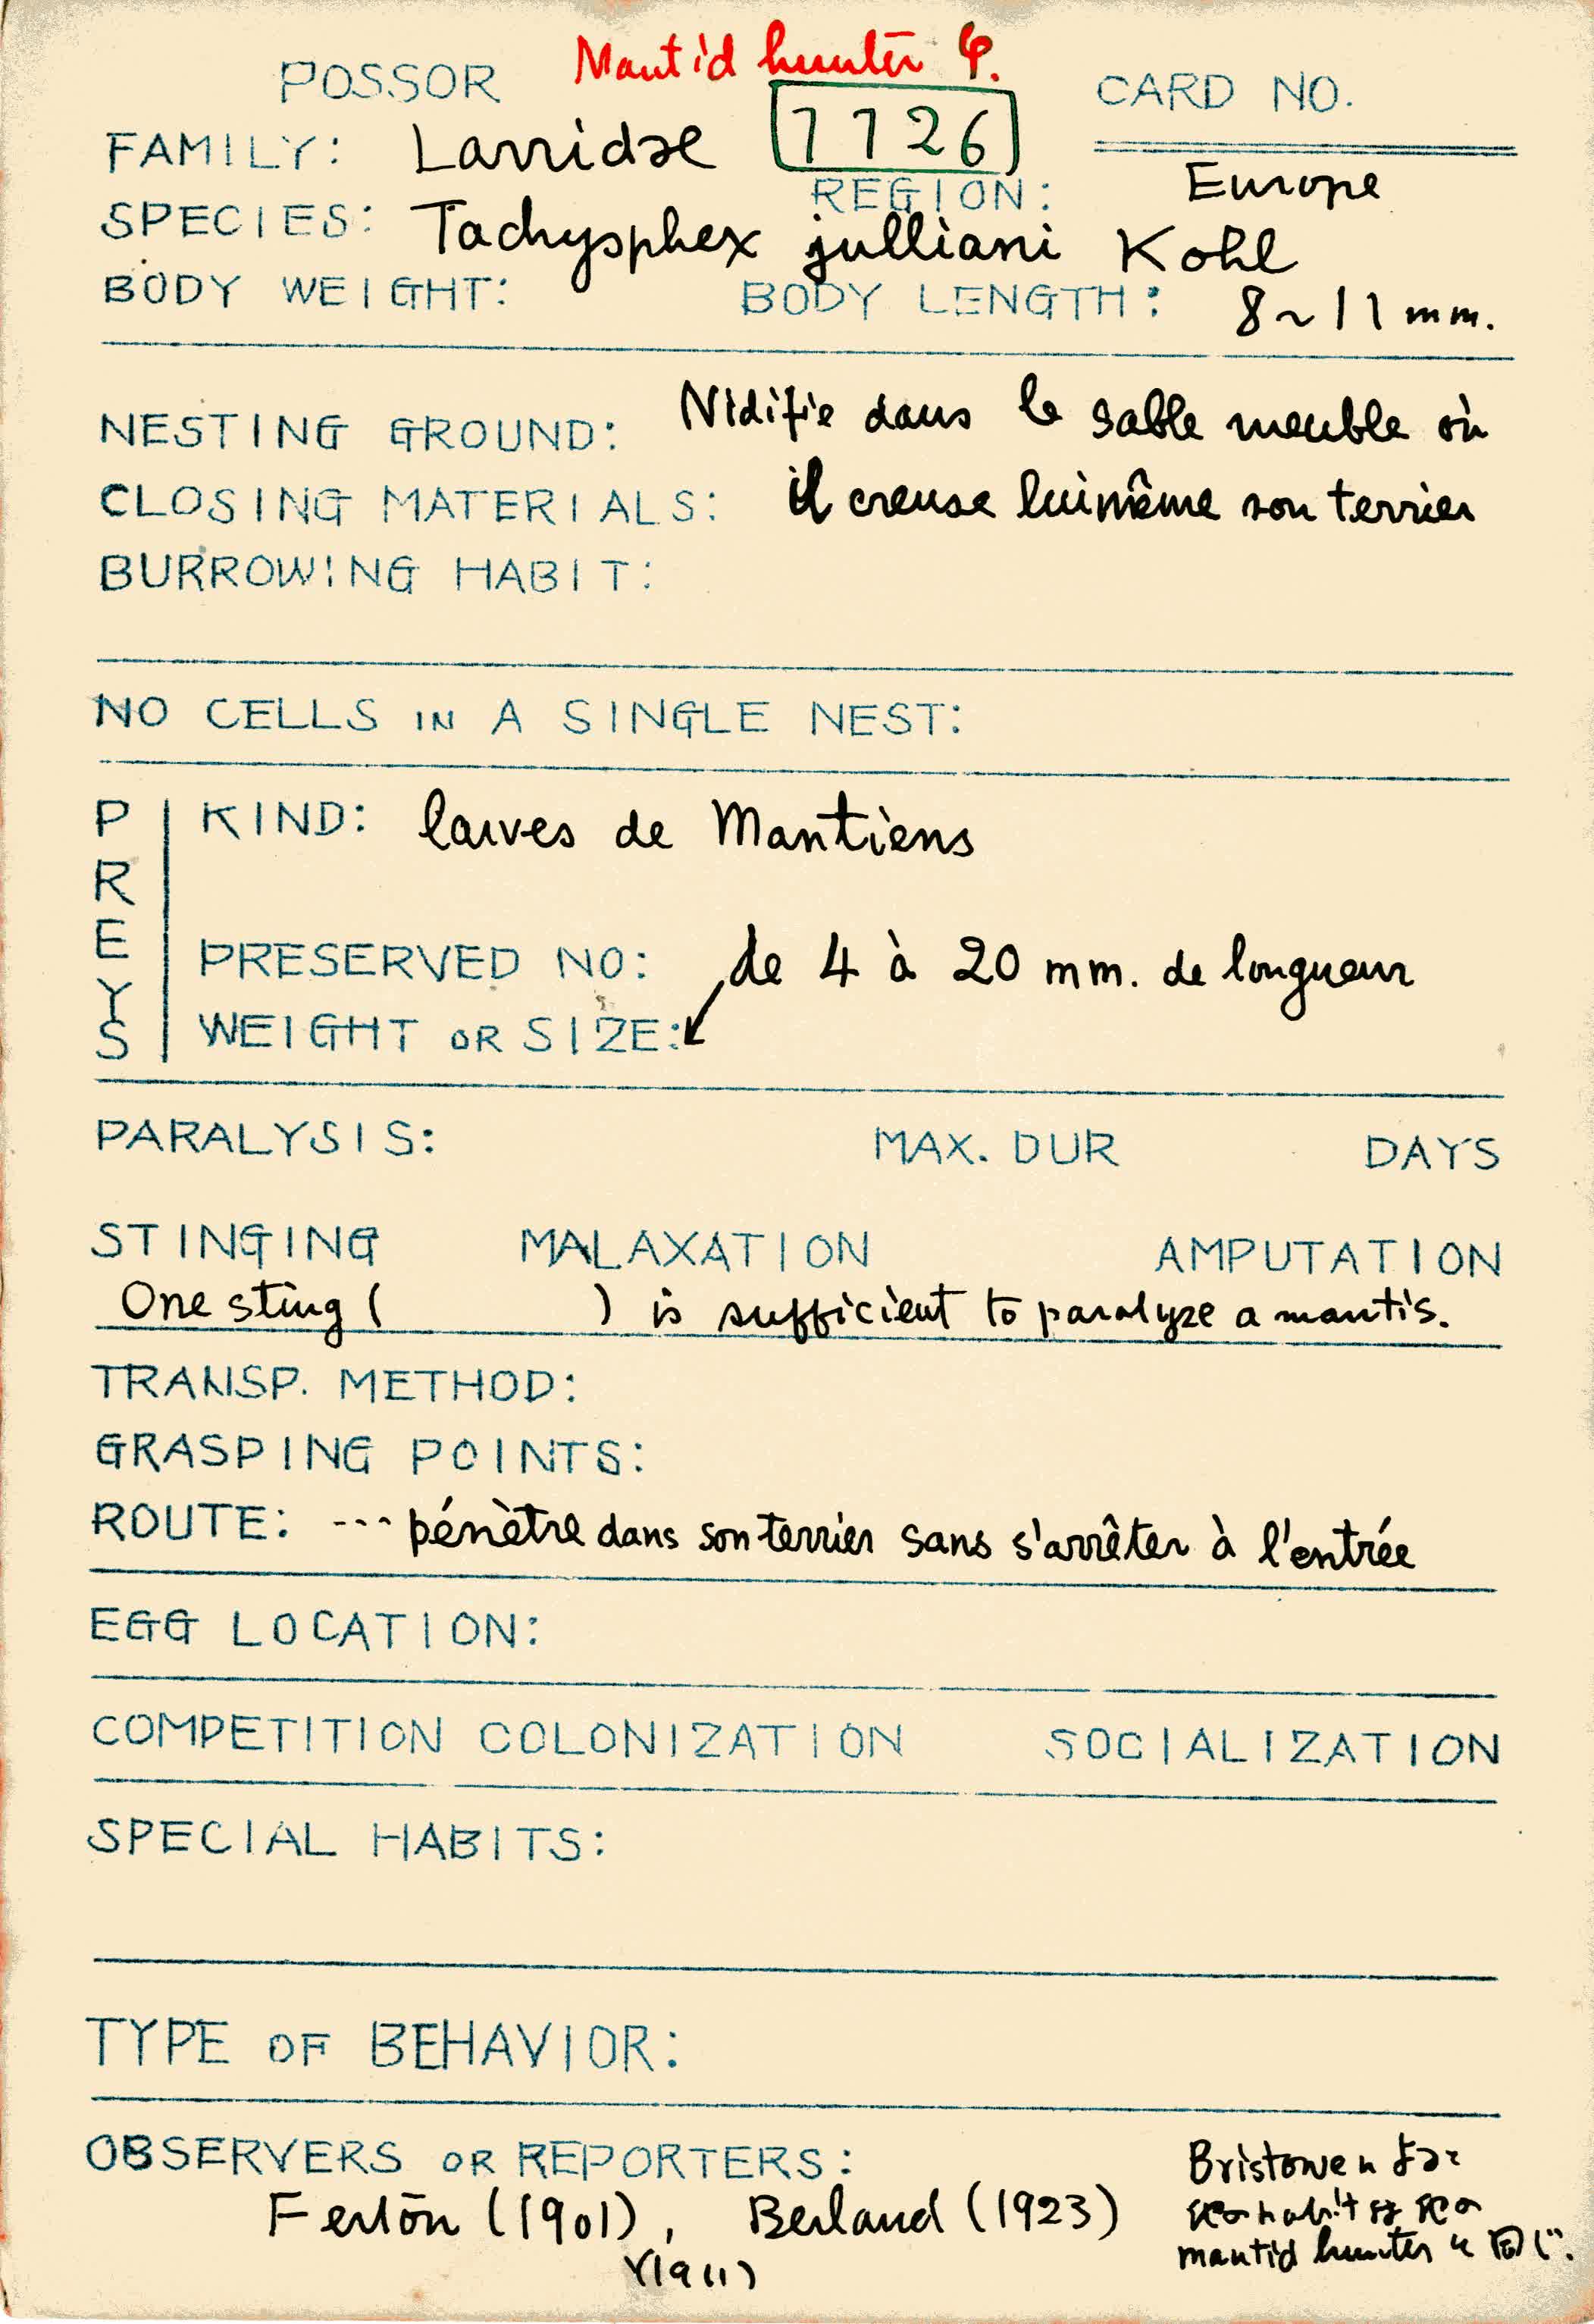 Mantid hunter φ.
POSSOR
CARD NO.
FAMILY: Larridae 1126
REGION: Europe
SPECIES: Tachysphex julliani Kohl
BODY WEIGHT: BODY LENGTH: 8~11 mm.
NESTING GROUND: Nidifie dans le sable meuble où
CLOSING MATERIALS: il creuse luimême son terrier
BURROWING HABIT:
NO CELLS IN A SINGLE NEST:
PREYS
KIND: larves de Mantiens
PRESERVED NO: de 4 à 20 mm. de longueur
WEIGHT OR SIZE:
PARALYSIS: MAX. DUR DAYS
STINGING MALAXATION AMPUTATION
One sting ( ) is sufficient to paralyze a mantis.
TRANSP. METHOD:
GRASPING POINTS:
ROUTE: --- pénètre dans son terrier sans s'arrêter à l'entrée
EGG LOCATION:
COMPETITION COLONIZATION SOCIALIZATION
SPECIAL HABITS:
TYPE OF BEHAVIOR:
OBSERVERS OR REPORTERS:
Ferton (1901), Berland (1923)
(1911)
Bristowe
habit
mantid hunter 同じ.